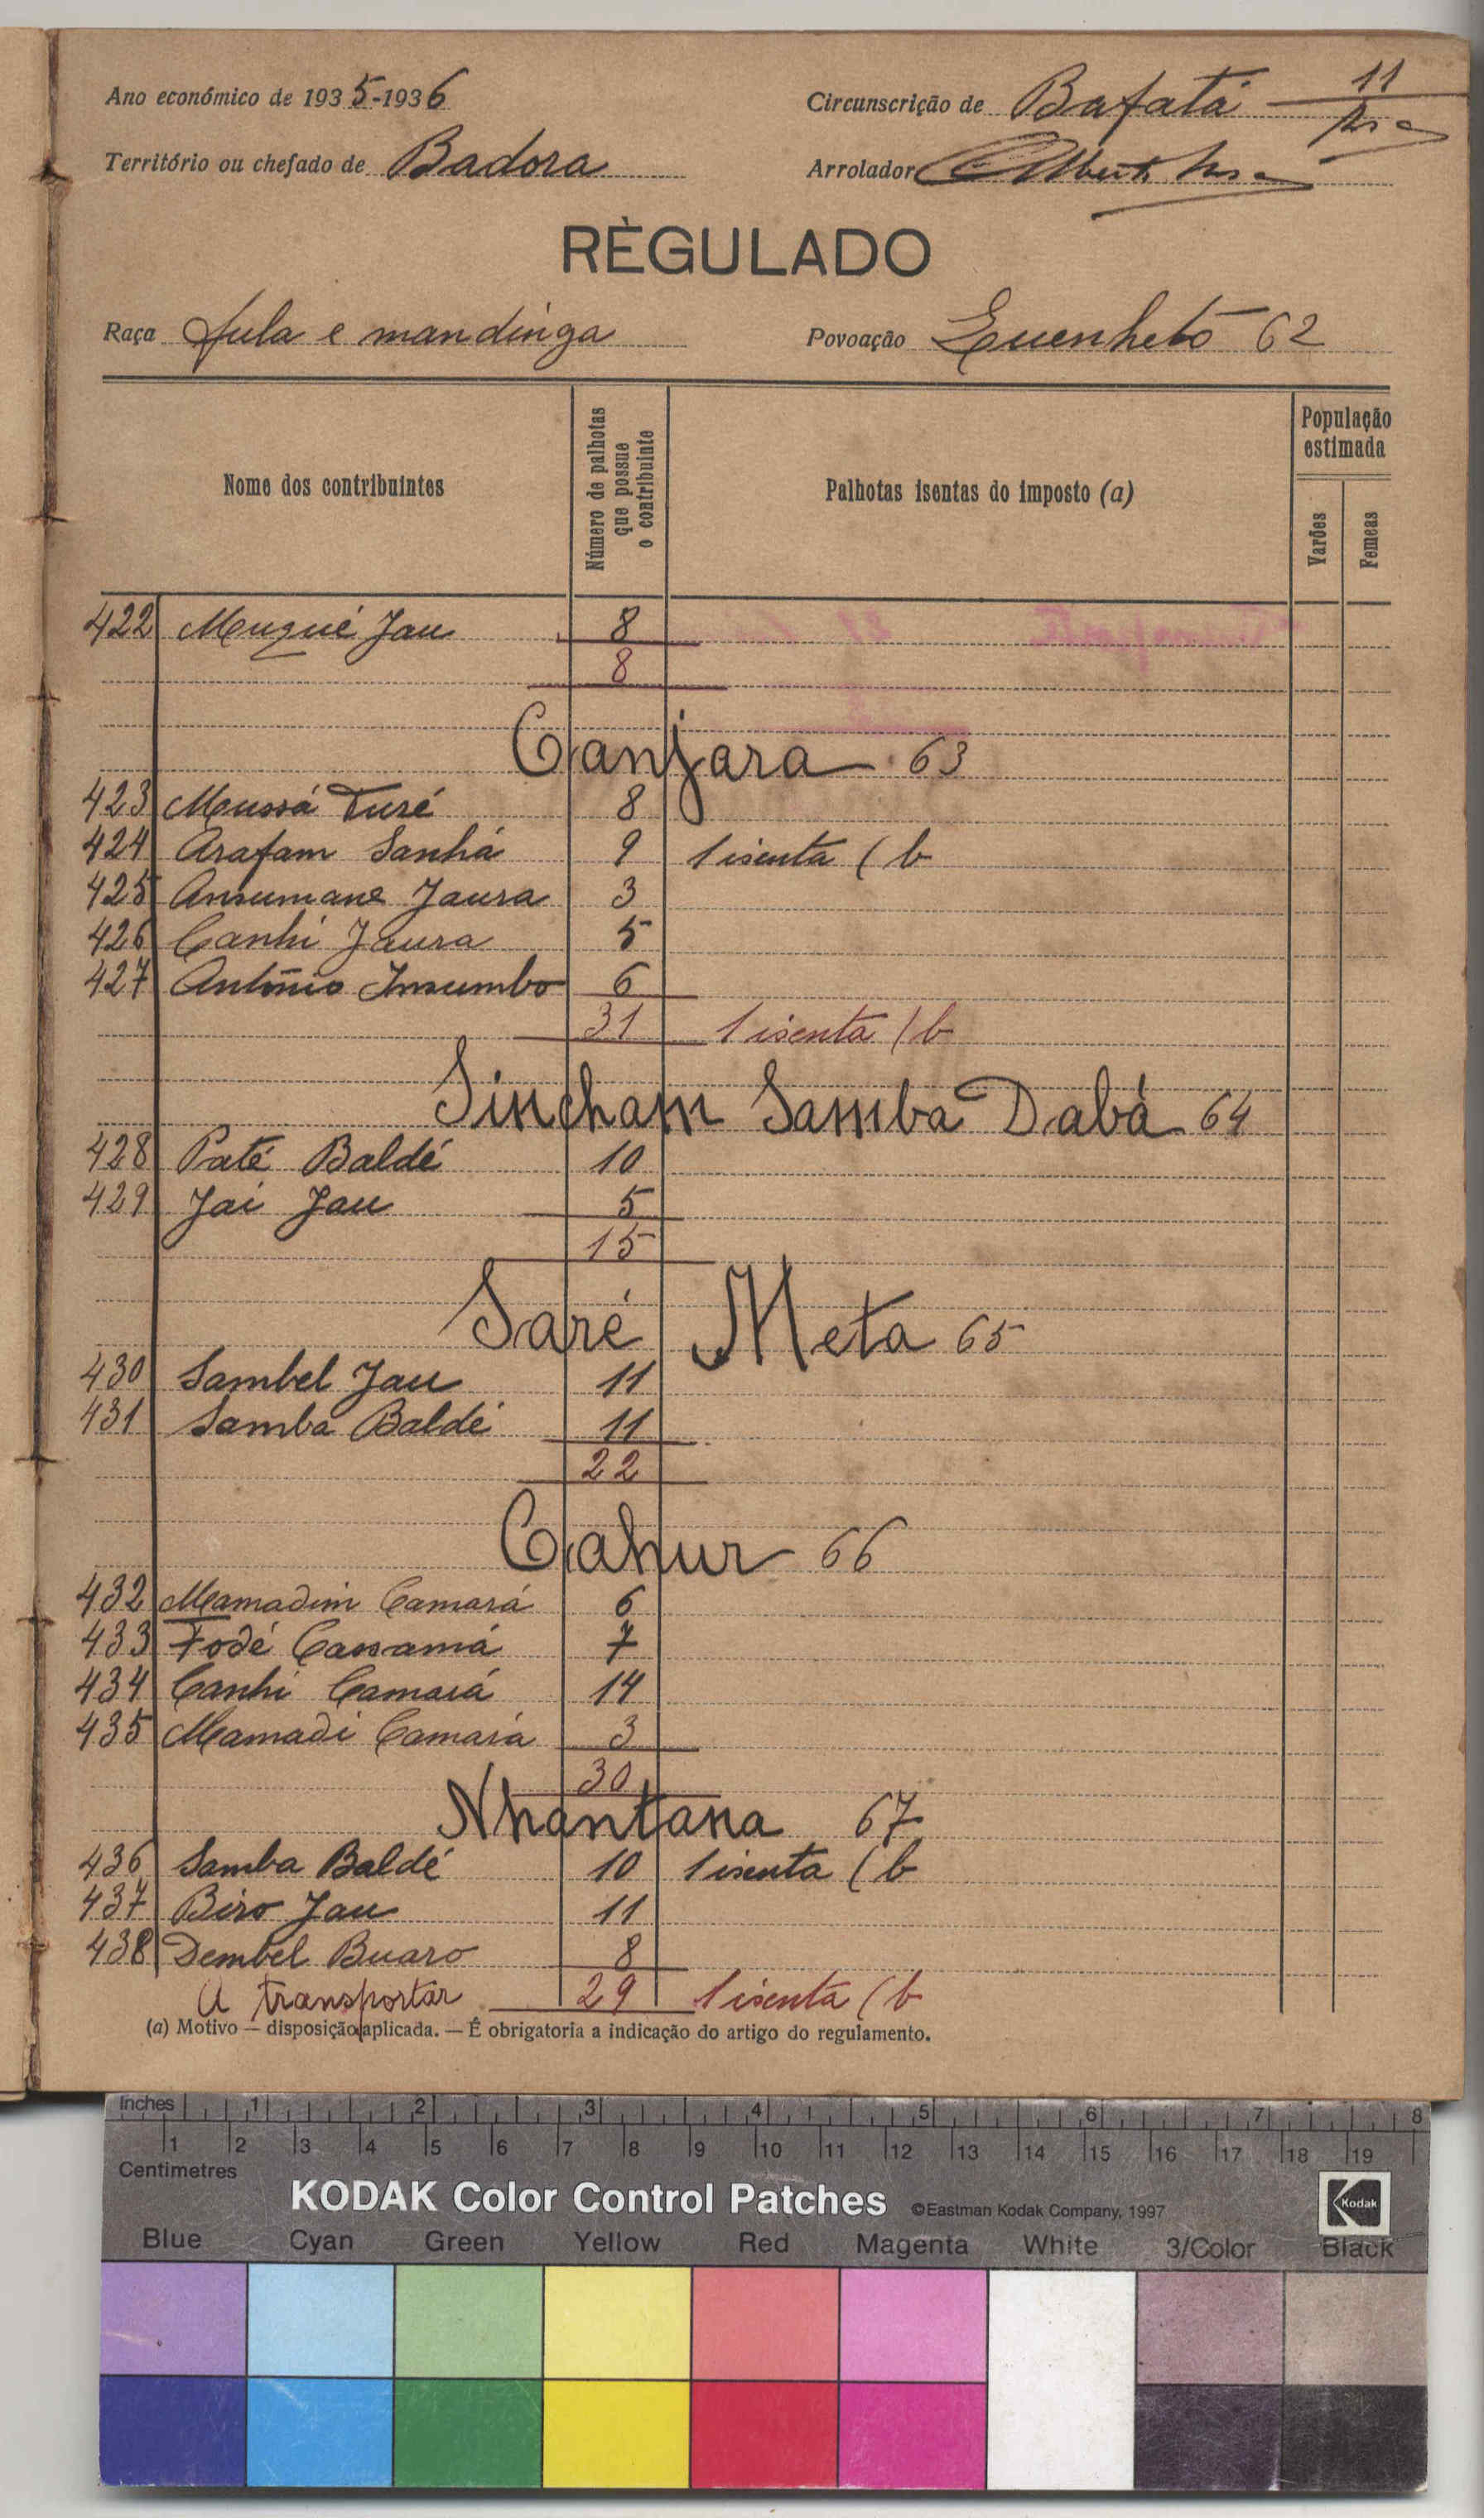 Ano económico de 1935-1936
Circunscrição de Bafatá 11
Território ou chefado de Badora
Arrolador
RÈGULADO
Raça fula e mandinga
Povoação Euenhetó 62
Nome dos contribuintes
Número de palhotas que possue o contribuinte
Palhotas isentas do imposto (a)
População estimada
Varões
Femeas
422 Muqué Jau 8
8
Canjara 63
423 Mussá Turé 8
424 Arafam Sanhá 9 1 isenta (b
425 Ansumane Jaura 3
426 Canhi Jaura 5
427 António Insumbo 6
31 1 isenta (b
Sincham Samba Dabá 64
428 Paté Baldé 10
429 Jai Jau 5
15
Saré Meta 65
430 Sambel Jau 11
431 Samba Baldé 11
22
Cahur 66
432 Mamadim Camará 6
433 Fodé Cassamá 7
434 Canhi Camará 14
435 Mamadi Camará 3
30
Nhantana 67
436 Samba Baldé 10 1 isenta (b
437 Biro Jau 11
438 Dembel Buaro 8
A transportar 29 1 isenta (b
(a) Motivo — disposição aplicada. — É obrigatoria a indicação do artigo do regulamento.
Inches 1 2 3 4 5 6 7 8
1 2 3 4 5 6 7 8 9 10 11 12 13 14 15 16 17 18 19
Centimetres
KODAK Color Control Patches ©Eastman Kodak Company, 1997 Kodak
Blue Cyan Green Yellow Red Magenta White 3/Color Black